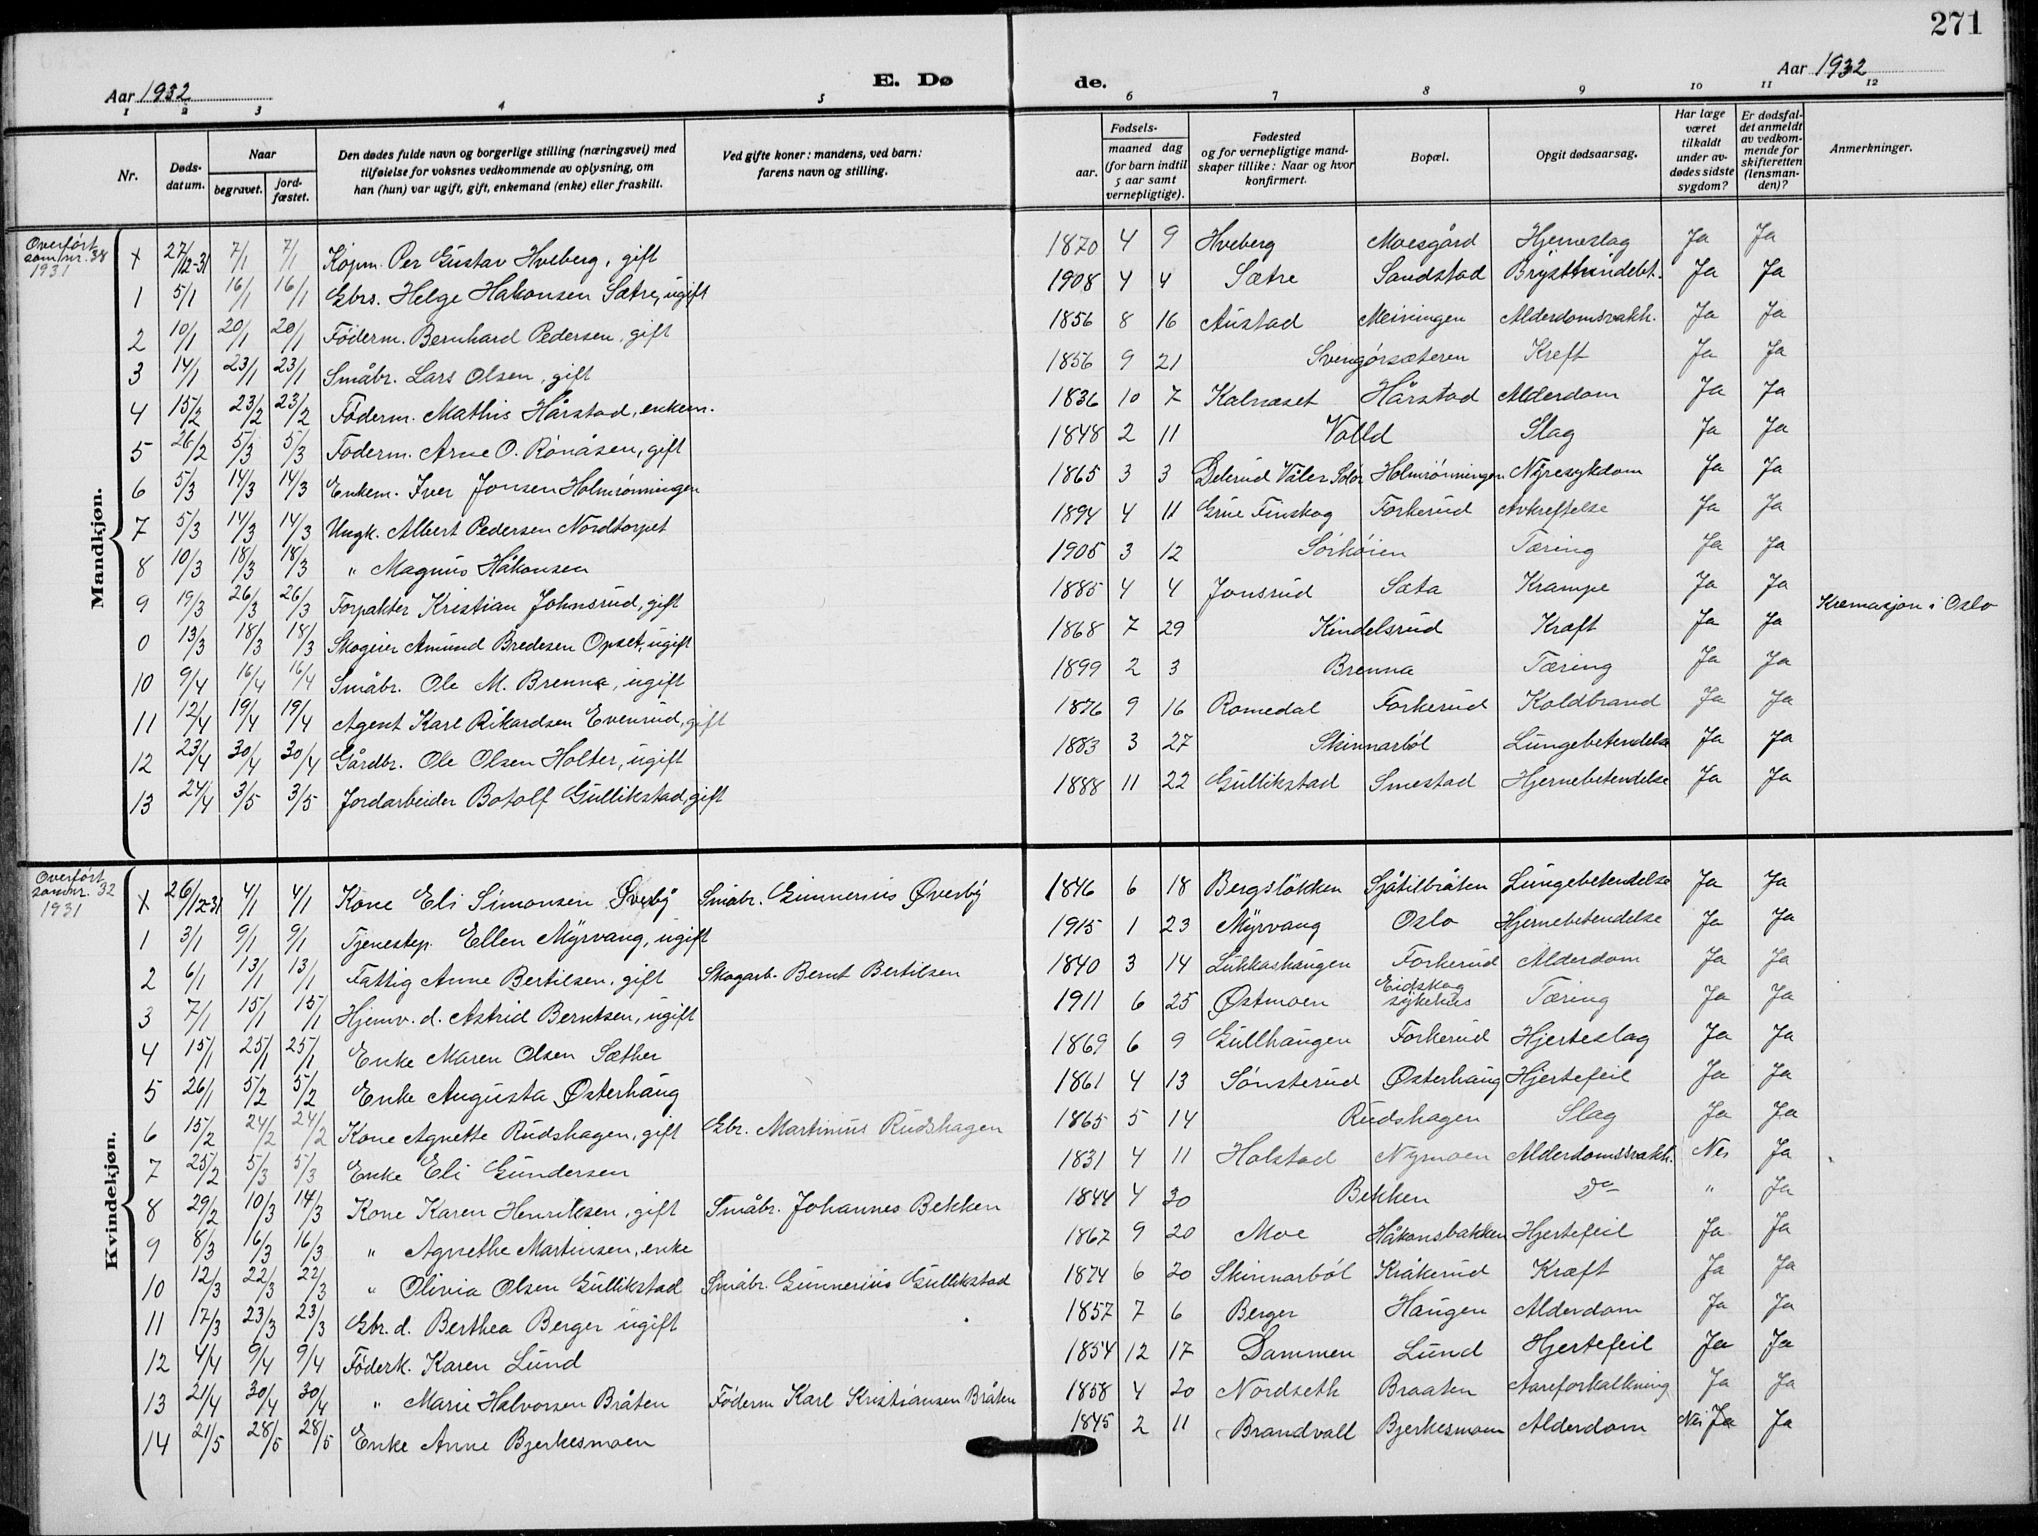 271
Aar 1932
E. Dø
de.
Aar 1932
1 2 3 4 5 6 7 8 9 10 11 12
Nr.
Døds-
datum.
Naar
begravet.
jord-
fæstet.
Den dødes fulde navn og borgerlige stilling (næringsvei) med
tilføielse for voksnes vedkommende av oplysning, om
han (hun) var ugift, gift, enkemand (enke) eller fraskilt.
Ved gifte koner: mandens, ved barn:
farens navn og stilling.
Fødsels-
aar.
maaned dag
(for barn indtil
5 aar samt
vernepligtige).
Fødested
og for vernepligtige mand-
skaper tillike: Naar og hvor
konfirmert.
Bopæl.
Opgit dødsaarsag.
Har læge
været
tilkaldt
under av-
dødes sidste
sygdom?
Er dødsfal-
det anmeldt
av vedkom-
mende for
skifteretten
(lensman-
den)?
Anmerkninger.
Mandkjøn.
Overført
som nr. 38
1931
x 27/12-31 7/1 7/1 Kjøpm. Per Gustav Hveberg, gift 1870 4 9 Hveberg Moesgård Hjerneslag Ja Ja
1 5/1 16/1 16/1 Gbrs. Helge Håkonsen Sætre, ugift 1908 4 4 Sætre Sandstad Brysthindebt. Ja Ja
2 10/1 20/1 20/1 Føderm. Bernhard Pedersen, gift 1856 8 16 Austad Meiningen Alderdomsvakh. Ja Ja
3 14/1 23/1 23/1 Småbr. Lars Olsen, gift 1856 9 21 Svengørsæteren Kreft Ja Ja
4 15/2 23/2 23/2 Føderm. Mathis Hårstad, enkem. 1836 10 7 Kalnæset Hårstad Alderdom Ja Ja
5 26/2 5/3 5/3 Føderm. Arne O. Rønåsen, gift 1848 2 11 Volld Slag Ja Ja
6 5/3 14/3 14/3 Enkem. Iver Jonsen Holmrønningen 1865 3 3 Delerud Våler Solør Holmrønningen Nyresykdom Ja Ja
7 5/3 14/3 14/3 Ungk. Albert Pedersen Nordtorpet 1894 4 11 Grue Finskog Forkerud Avkreftelse Ja Ja
8 10/3 18/3 18/3 " Magnus Håkonsen 1905 3 12 Sørkøien Tæring Ja Ja
9 19/3 26/3 26/3 Forpakter Kristian Johnsrud, gift 1885 4 4 Jonsrud Sæta Krampe Ja Ja
0 13/3 18/3 18/3 Skogeier Amund Bredesen Opset, ugift 1868 7 29 Kindelsrud Kræft Ja Ja Kremasjon i Oslo
10 9/4 16/4 16/4 Småbr. Ole M. Brenna, ugift 1899 2 3 Brenna Tæring Ja Ja
11 12/4 19/4 19/4 Agent Karl Rikardsen Evenrud, gift 1876 9 16 Romedal Forkerud Koldbrand Ja Ja
12 23/4 30/4 30/4 Gårdbr. Ole Olsen Holter, ugift 1883 3 27 Skinnarbøl Lungebetendelse Ja Ja
13 24/4 3/5 3/5 Jordarbeider Botolf Gullikstad, gift 1888 11 22 Gullikstad Smestad Hjernebetendelse Ja Ja
Kvindekjøn.
Overført
som nr. 32
1931
x 26/12-31 4/1 4/1 Kone Eli Simonsen Øverby Småbr. Gunnerius Øverby 1846 6 18 Bergsløkken Sjåtilbråten Lungebetendelse Ja Ja
1 3/1 9/1 9/1 Tjenestep. Ellen Myrvang, ugift 1915 1 23 Myrvang Oslo Hjernebetendelse Ja Ja
2 6/1 13/1 13/1 Fattig Anne Bertilsen, gift Skogarb. Bernt Bertilsen 1840 3 14 Lukkashaugen Forkerud Alderdom Ja Ja
3 7/1 15/1 15/1 Hjemv. d. Astrid Berntsen, ugift 1911 6 25 Østmoen Eidskog sykehus Tæring Ja Ja
4 15/1 25/1 25/1 Enke Maren Olsen Sæther 1869 6 9 Gullhaugen Forkerud Hjerteslag Ja Ja
5 26/1 5/2 5/2 Enke Augusta Østerhaug 1861 4 13 Sønsterud Østerhaug Hjertefeil Ja Ja
6 15/2 24/2 24/2 Kone Agnette Rudshagen, gift Gbr. Martinius Rudshagen 1865 5 14 Rudshagen Slag Ja Ja
7 25/2 5/3 5/3 Enke Eli Gundersen 1831 4 11 Holstad Nymoen Alderdomssvakh. Nei Ja
8 29/2 10/3 14/3 Kone Karen Henriksen, gift Småbr. Johannes Bekken 1844 4 30 Bekken Do " Ja
9 8/3 16/3 16/3 " Agnethe Martinsen, enke 1867 9 20 Moe Håkonsbakken Hjertefeil Ja Ja
10 12/3 22/3 22/3 " Olivia Olsen Gullikstad Småbr. Gunnerius Gullikstad 1874 6 20 Skinnarbøl Kråkerud Kræft Ja Ja
11 17/3 23/3 23/3 Gbr. d. Berthea Berger ugift 1857 7 6 Berger Haugen Alderdom Ja Ja
12 4/4 9/4 9/4 Føderk. Karen Lund 1854 12 17 Dammen Lund Hjertefeil Ja Ja
13 21/4 30/4 30/4 " Marie Halvorsen Bråten Føderm Karl Kristiansen Bråten 1858 4 20 Nordseth Braaten Aareforkalkning Ja Ja
14 21/5 28/5 28/5 Enke Anne Bjerkesmoen 1845 2 11 Brandvall Bjerkesmoen Alderdom Nei Ja Ja